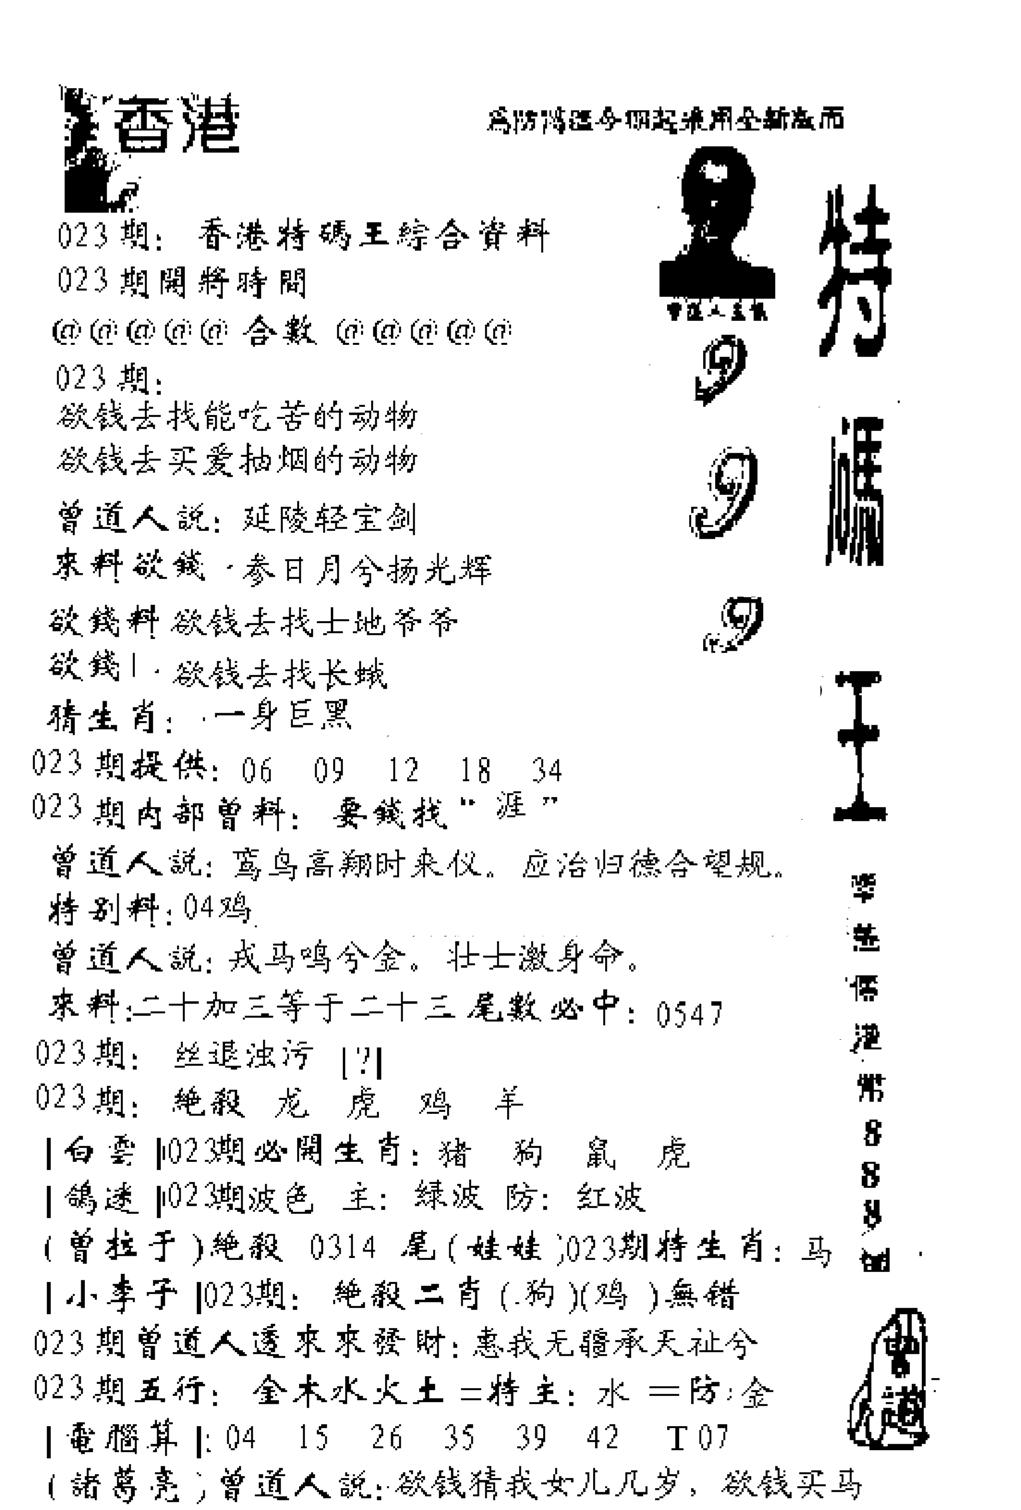 香港
為防濫今期起采用全新版面
特碼王
曾道人主講
999
023期: 香港特碼王綜合資料
023期開將時間
@@@@@ 合數 @@@@@
023期:
欲钱去找能吃苦的动物
欲钱去买爱抽烟的动物
曾道人説: 延陵轻宝剑
來料欲錢·参日月兮扬光辉
欲錢料 欲钱去找士地爷爷
欲錢|·欲钱去找长蛾
猜生肖: ·一身巨黑
023期提供: 06 09 12 18 34
023期内部曾料: 要錢找“涯”
曾道人説: 鸾鸟高翔时来仪。应治归德合望规。
特别料: 04鸡
曾道人説: 戎马鸣兮金。壮士激身命。
來料:二十加三等于二十三 尾數必中: 0547
023期: 丝退浊污 [?]
023期: 絶殺 龙 虎 鸡 羊
|白雲|023期必開生肖: 猪 狗 鼠 虎
|鴿迷|023期波色 主: 緑波 防: 红波
(曾拉于)絶殺 0314 尾(娃娃)023期特生肖: 马
|小李子|023期: 絶殺二肖(.狗)(鸡 )無错
023期曾道人透來來發財: 惠我无疆承天祉兮
023期五行: 金木水火土=特主: 水 =防: 金
|電腦算|: 04 15 26 35 39 42 T07
(諸葛亮)曾道人説: 欲钱猜我女儿几岁, 欲钱买马
港幣888
曾道